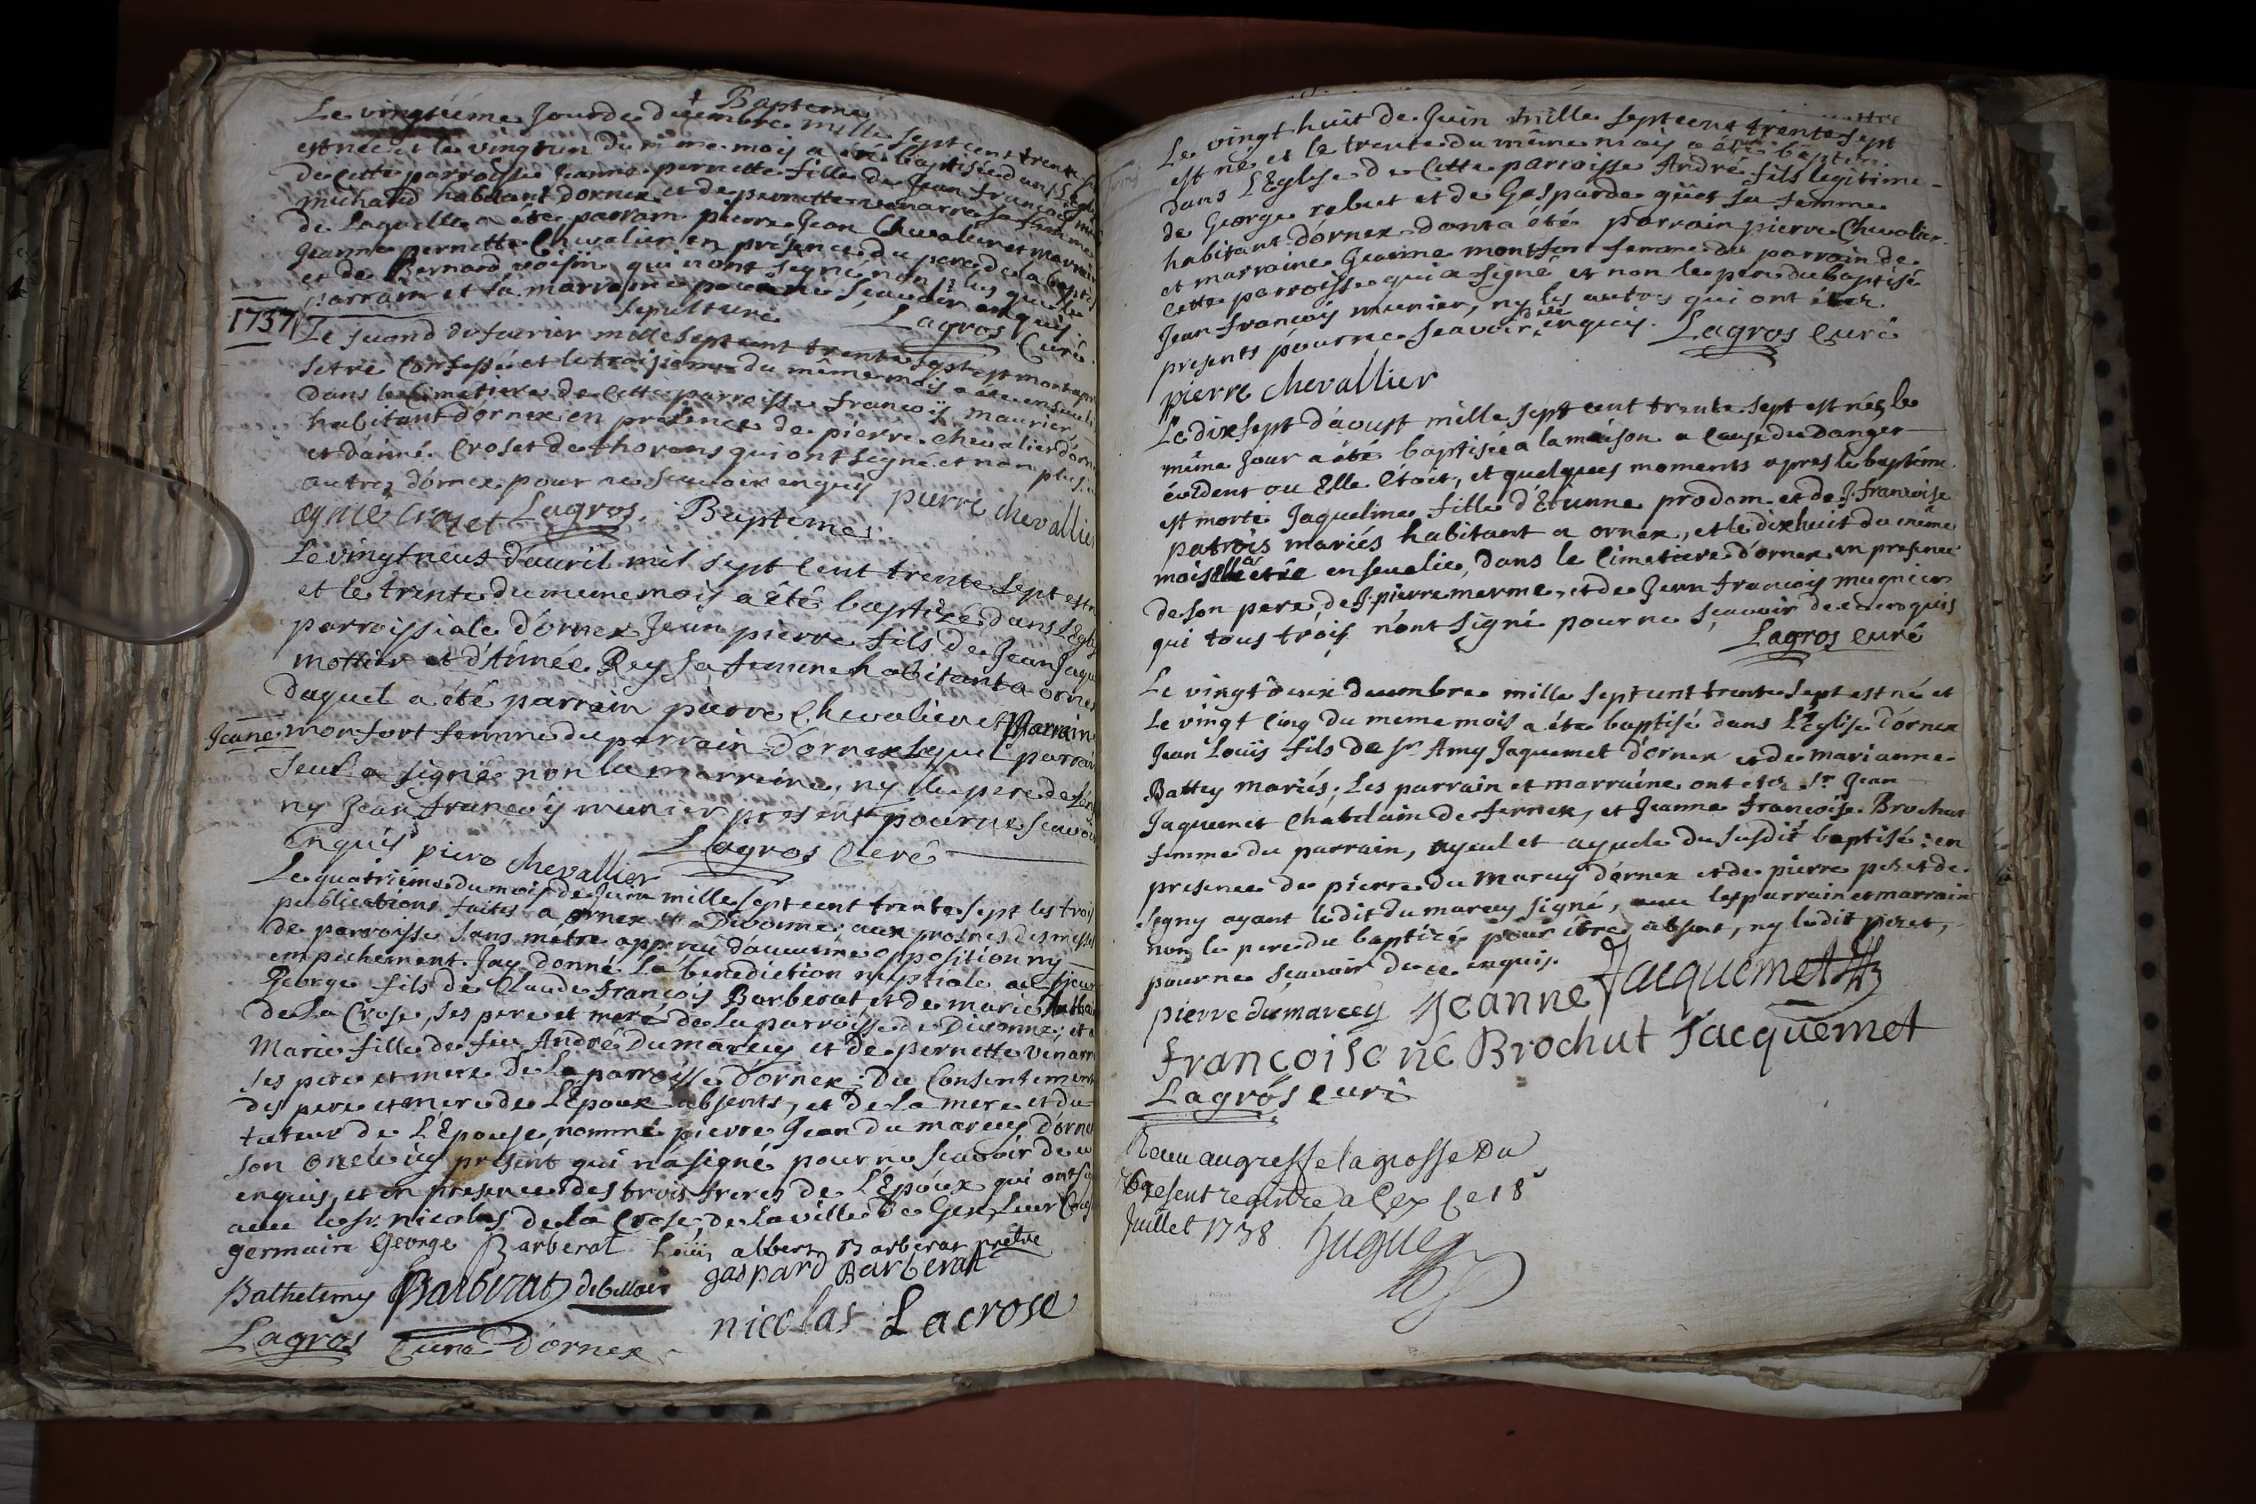 Bapteme
Le vingtiéme Jour de decembre mille sept cent trente
est née et le vingt un du meme mois a été baptisée dans L'Eglise
de Cette parroisse Jeanne pernette fille de Jean francois
michaud habitant dornex et de pernette venarre sa femme
de Laquelle a été parrain pierre Jean Chevalier et marraine
Jeanne pernette Chevalier en présence du pere de la baptisée
et de Bernard voisin qui n'ont signé non plus que le
parrain et la marraine pour ne sçavoir enquis.
Lagros Curé
Sepulture
1737
Le second de fevrier mille sept cent trente sept est mort apres
s'etre Confessé et le troisieme du même mois a été enseveli
dans le Cimetiere de Cette parroisse francois maurier
habitant d'ornex en présence de pierre chevalier d'ornex
et d'aimé Croset de thorens qui ont signé et non plus
autres d'ornex pour ne sçavoir enquis
pierre chevallier
Crozet Lagros.
Baptême
Le vingt neuf d'avril mil sept Cent trente sept est né
et le trente du meme mois a été baptizé dans L'Eglise
parroissiale d'ornex Jean pierre fils de Jean Jaque
mottier et d'Année Rey sa femme habitant a ornex
Duquel a été parrain pierre Chevalier et Marraine
Jeanne monfort femme du parrain d'ornex lequel parrain
seul a signé non la marraine, ny le pere de l'enf
ny Jean francois munier present pour ne scavoir
Enquis pierre chevallier Lagros Curé
Le quatriéme du mois de Juin mille sept cent trente sept les trois
publications faites a ornex et a Divonne aux prosnes des messes
de parroisse sans m'etre apperçu d'aucune opposition ny
empechement. J'ay donné la benediction nuptiale au sieur
George fils de Claude francois Barberat, et de marie
de La Crose, ses pere et mere de La parroisse de Divonne; et a
Marie fille de feu André Dumarcey et de pernette venarre
ses pere et mere de La parroisse d'ornex: du Consentement
des pere et mere de L'Epoux absents, et de La mere et du
tuteur de L'Epouse, nommé pierre Jean du marcey d'ornex
son oncle icy present qui n'a signé pour ne scavoir de ce
enquis, et en presence des trois freres de L'Epoux qui ont signé
avec le sr. nicolas de la Crose, de La ville de Gex, leur Cousin
germain George Barberat Loüis albert Barberat prêtre
Bathelemy Barberat debillair gaspard Barberat
nicolas Lacrose
Lagros Curé D'ornex
Le vingt huit de Juin mille sept cent trente sept
est né et le trente du même mois a été baptisé
dans L'Eglise de Cette parroisse André fils legitime
de George rebut et de Gasparde quet sa femme
habitant d'ornex dont a été parrain pierre Chevalier
et marraine Jeanne montfort femme du parrain de
Cette parroisse qui a signé et non le pere du baptisé
Jean francois munier, ny les autres qui ont été
presents pour ne sçavoir enquis. Lagros Curé
pierre chevallier
Le dix sept d'aoust mille sept cent trente sept est née, le
même Jour a été baptisée a la maison a Cause du danger
évident ou Elle étoit, et quelques moments apres le baptême
est morte Jaqueline fille d'Etienne prodom et de J. francoise
patrois mariés habitant a ornex, et le dix huit du même
mois Elle a été ensevelie, dans le Cimetiere d'ornex en presence
de son pere de J. pierre merme, et de Jean francois mugnier
qui tous trois n'ont signé pour ne sçavoir de ce enquis
Lagros curé
Le vingt deux decembre mille sept cent trente sept est né et
Le vingt Cinq du meme mois a été baptisé dans L'Eglise d'ornex
Jean Loüis fils de Sr. Amy Jaquemet d'ornex et de marianne
Battey mariés; Les parrain et marraine ont été Sr. Jean
Jaquemet Chatelain de fernex, et Jeanne francoise Brochut
femme du parrain, ayeul et ayeule du susdit baptisé; en
presence de pierre Du marcey d'ornex et de pierre peret de
segny ayant le dit du marcey signé, avec les parrain et marraine
non le pere du baptizé pour être absent, ny le dit peret,
pour ne sçavoir de ce enquis. Jacquemet
pierre dumarcey Jeanne
françoise né Brochut Jacquemet
Lagros curé
Receu au greffe la grosse Du
present registre a Gex ce 18e
Juillet 1738 Huguet